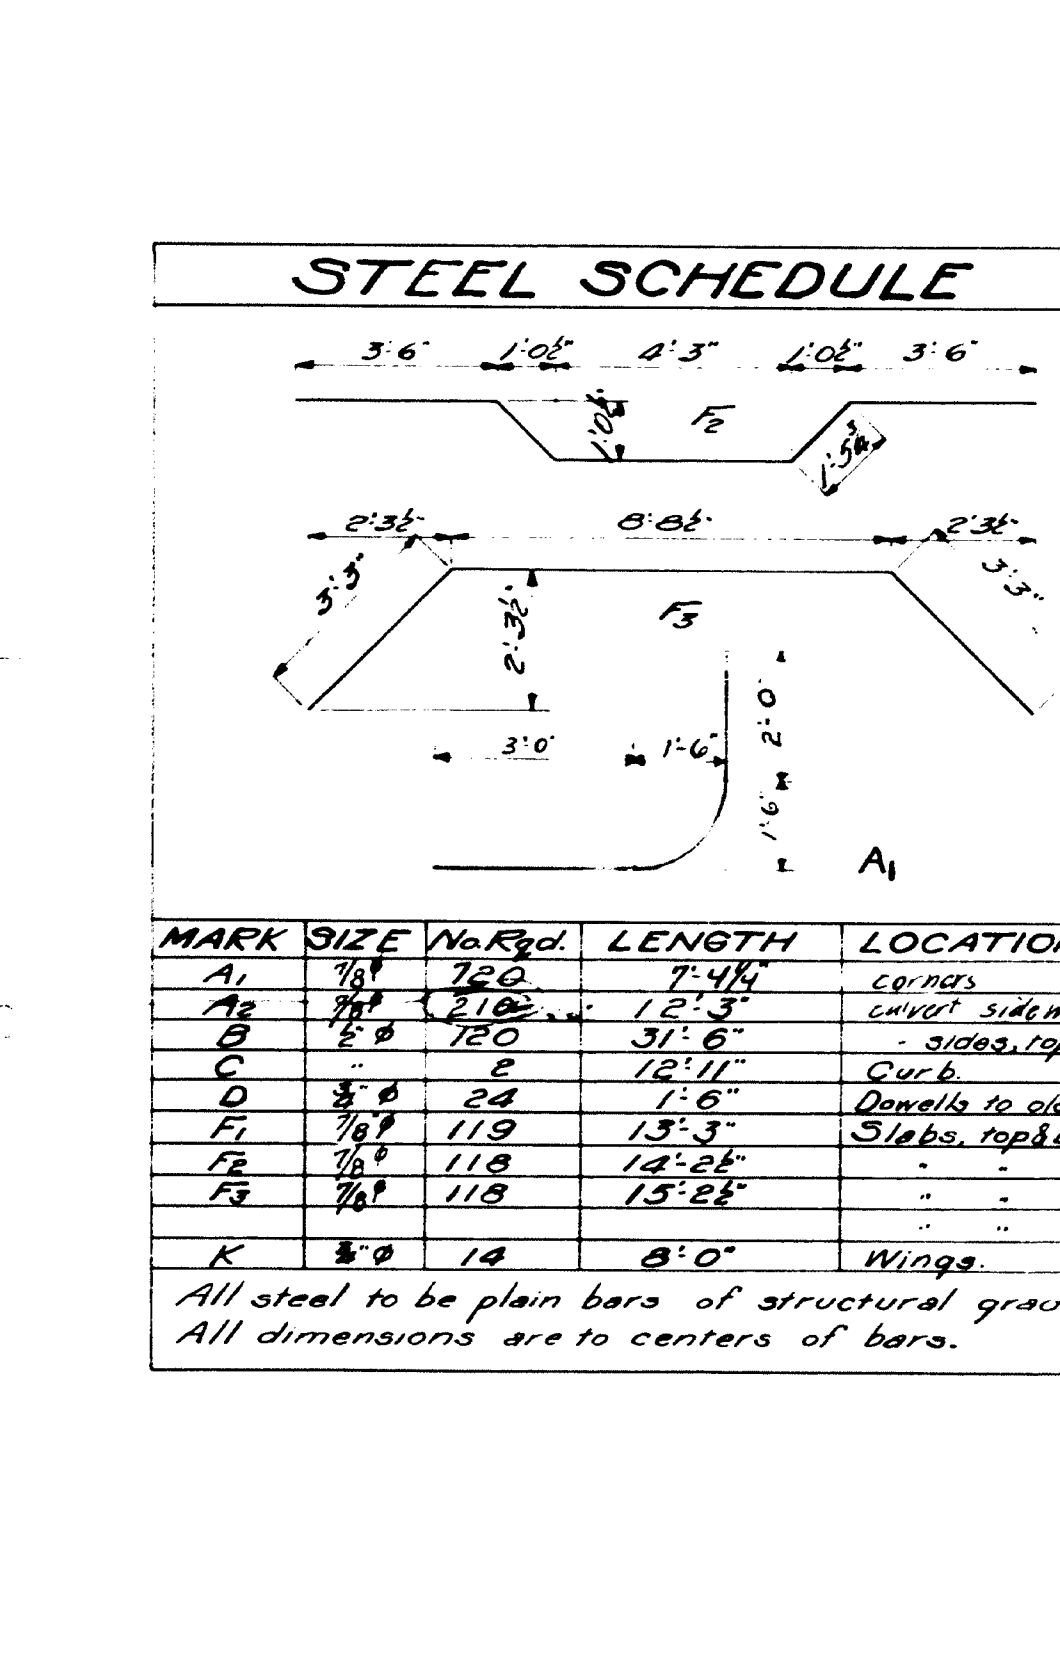 STEEL SCHEDULE
3'-6" 1'-0½" 4'-3" 1'-0½" 3'-6"
1'-0½" F2 1'-5¾"
2'-3½" 8'-8½" 2'-3½"
3'-3" 2'-3½" F3 3'-3"
3'-0" 1'-6" 2'-0"
1'-6"
A1
MARK SIZE No.Rqd. LENGTH LOCATIO
A1 7/8"φ 720 7'-4¼" corners
A2 φ 12'-3" culvert
B ½"φ 120 31'-6" " sides, top
C " 2 12'-11" Curb.
D ¾"φ 24 1'-6" Dowells to old
F1 7/8"φ 119 13'-3" Slabs, top&
F2 7/8"φ 118 14'-2½" " "
F3 7/8"φ 118 15'-2½" " "
" "
K "φ 14 8'-0" Wings.
All steel to be plain bars of structural
All dimensions are to centers of bars.